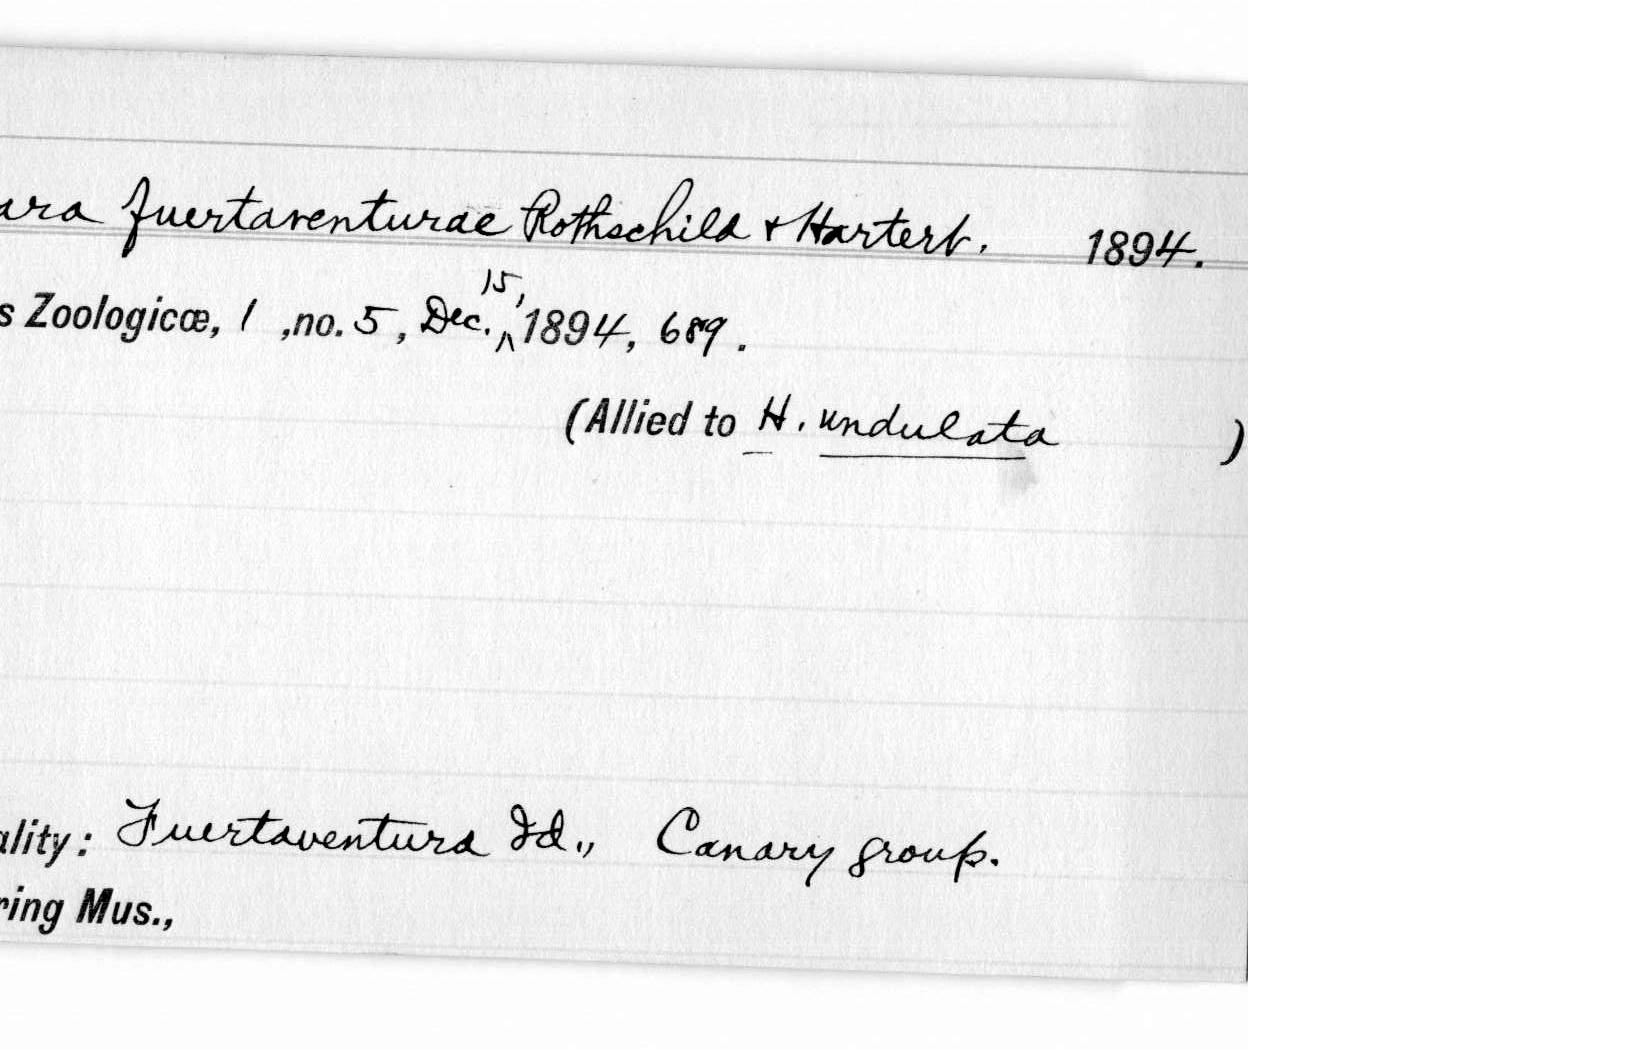 ara fuertaventurae Rothschild & Hartert. 1894.
s Zoologicæ, 1 ,no. 5, Dec. 15, 1894, 689.
(Allied to H. undulata )
ality: Fuertaventura Id., Canary group.
ring Mus.,